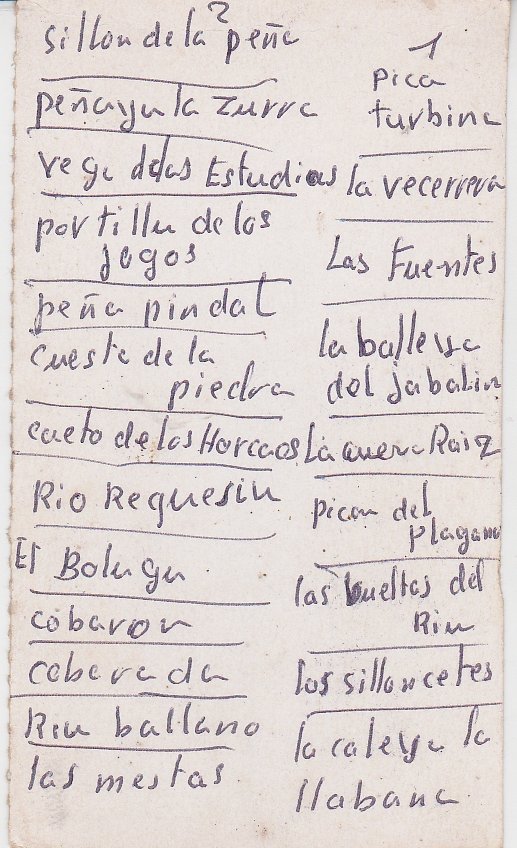 2
sillon de la peña
peñayu la zurra
vega delas Estudias
portillu de los
jogos
peña pindal
cuesta de la
piedra
cueto de las Horcaos
Rio Requesiu
El Bolugu
cobaron
coberada
Riu ballano
las mestas
1
pica
turbina
la vecerrera
Las Fuentes
la balleya
del jabalin
La cueva Raiz
picon del
plaganu
las bueltas del
Riu
los silloncetes
la caleya la
llabana